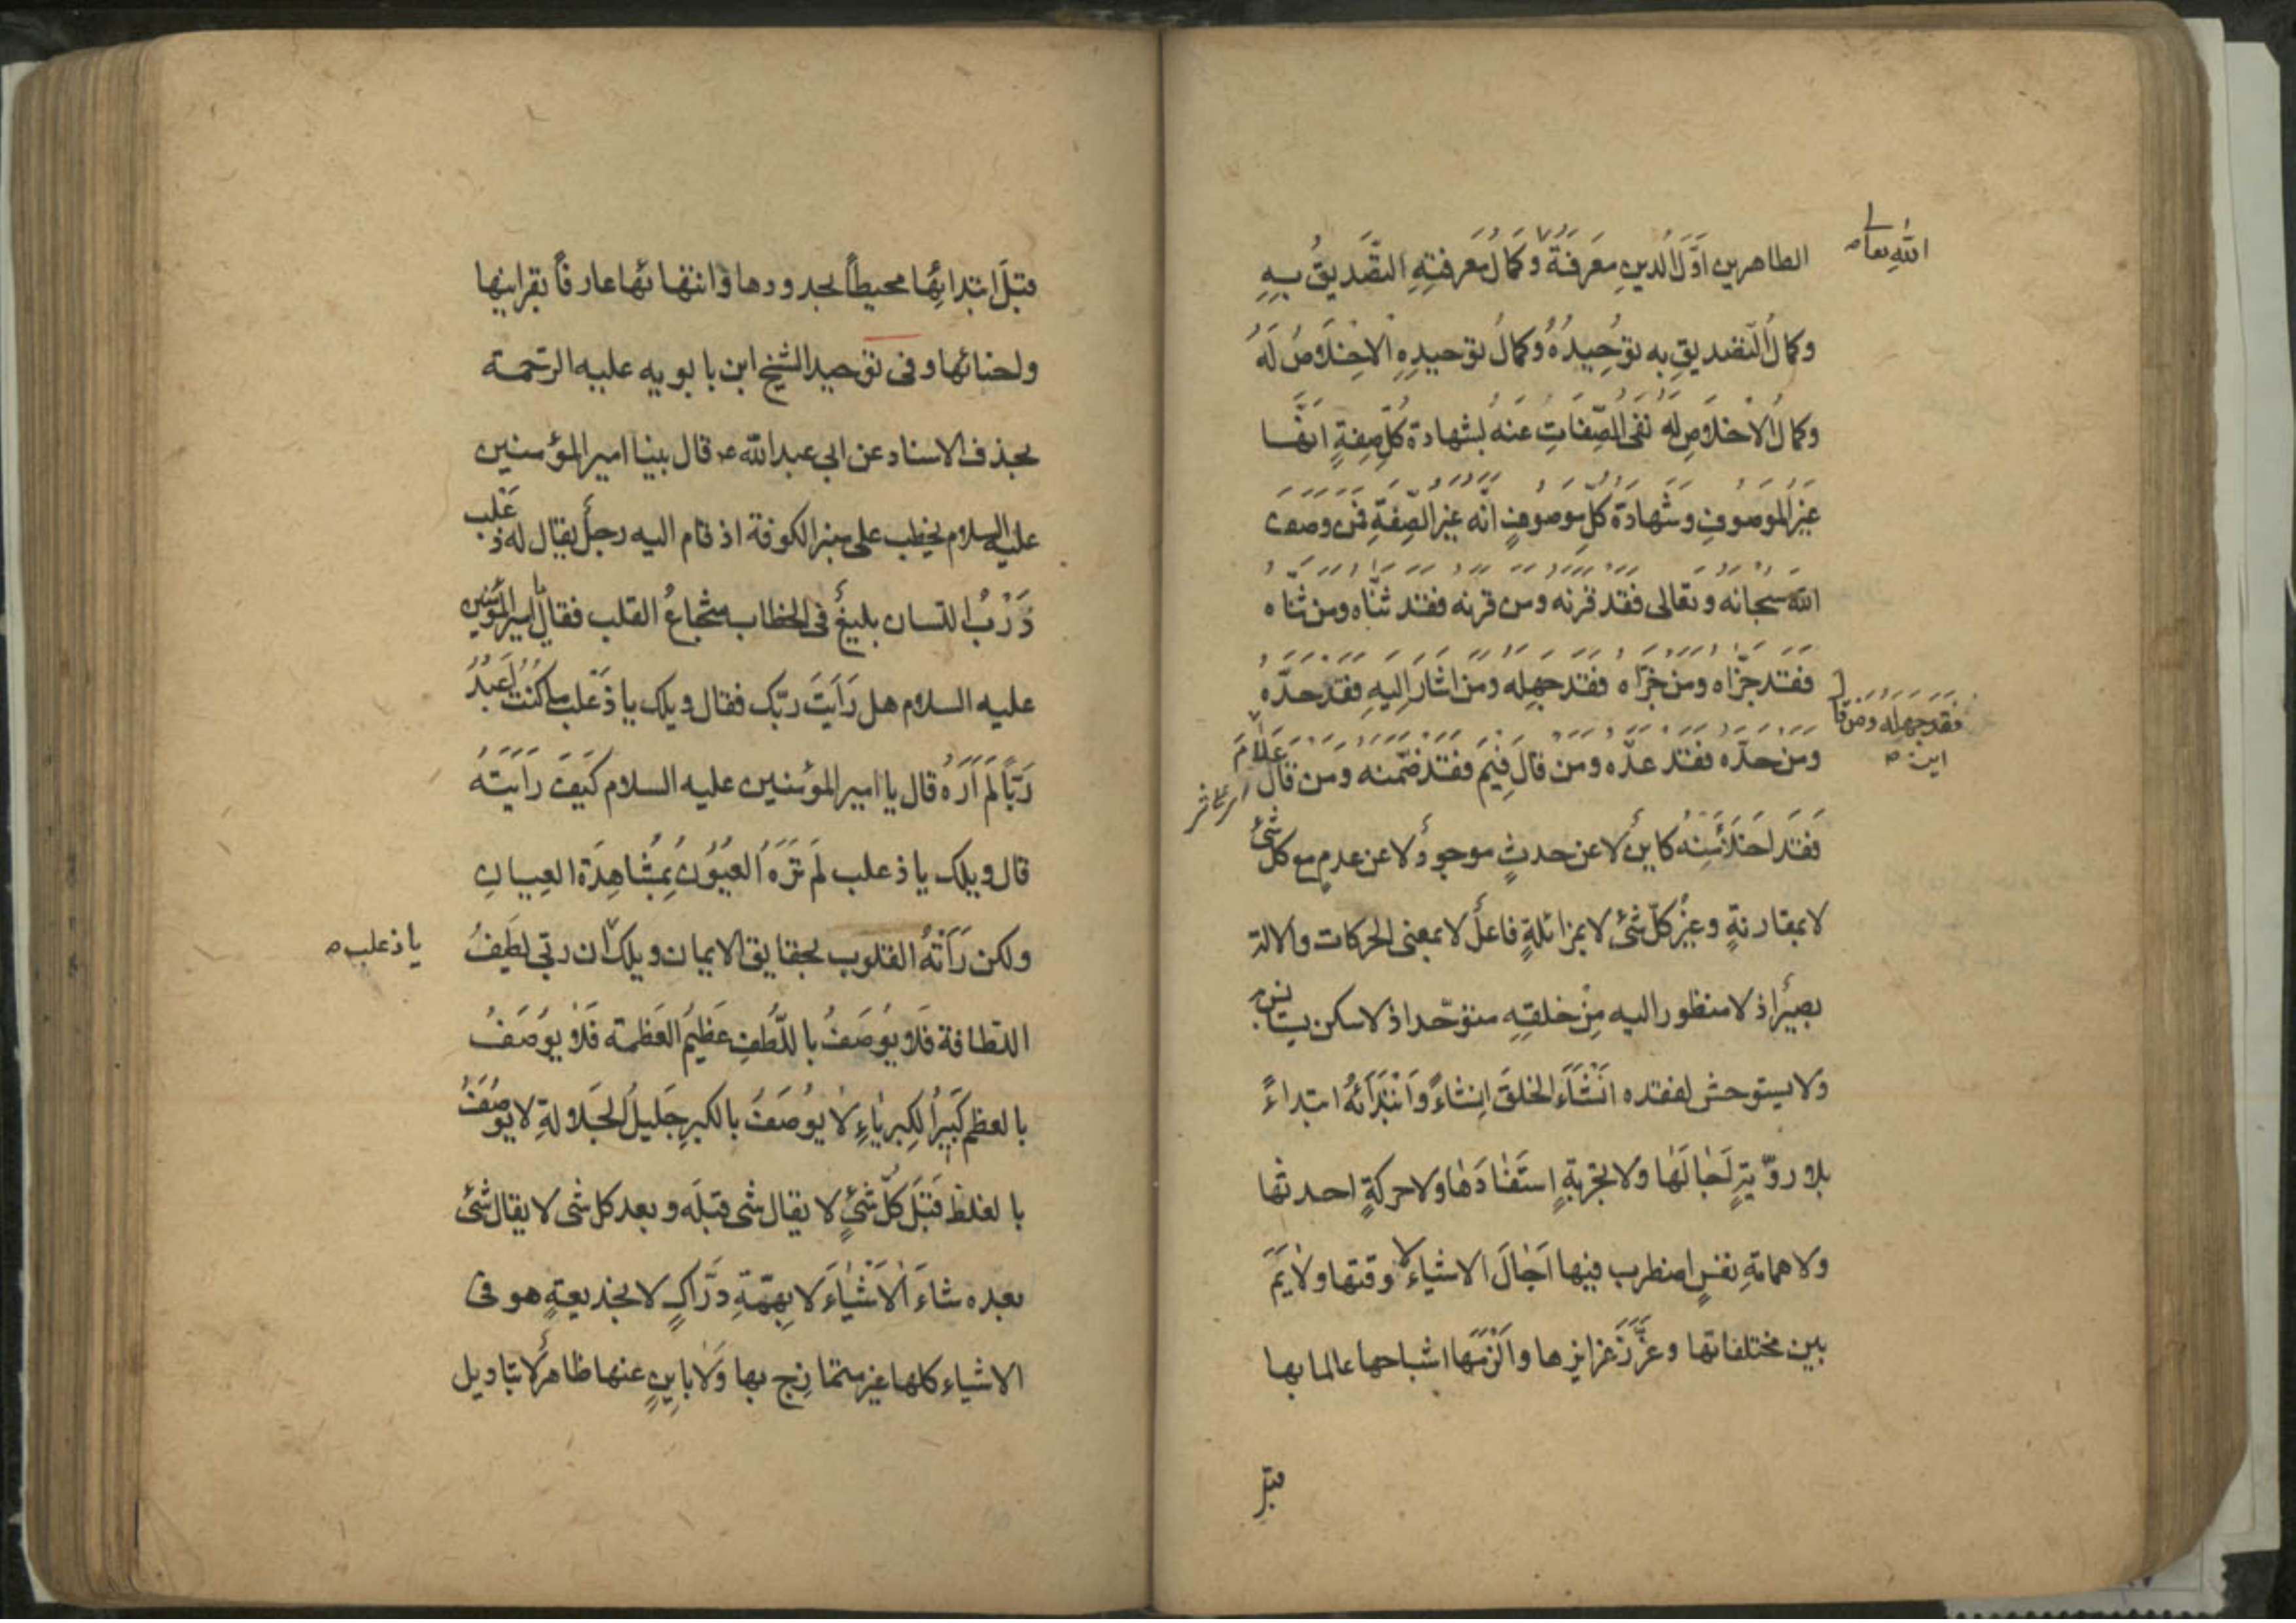 الله تعالى
الطاهرين اوّل الدين معرفة وكمال معرفته التّصديق به
وكمال التصديق به توحيده وكمال توحيده الاخلاص له
وكمال الاخلاص له نفى الصّفات عنه لشهادة كلّ صفة انّها
غير الموصوف وشهادة كلّ موصوف انّه غير الصّفة فمن وصف
الله سبحانه وتعالى فقد قرنه ومن قرنه فقد ثنّاه ومن ثنّاه
فقد جزّاه ومن جزّاه فقد جهله ومن اشار اليه فقد حدّه
فقد جهله ومن قا
اين
ومن حدّه فقد عدّه ومن قال فيم فقد ضمّنه ومن قال علام
فقد اخلا منه كاين لا عن حدث موجود لا عن عدم مع كل شئ
لا بمقارنة وغير كلّ شئ لا بمزائلة فاعل لا بمعنى الحركات والالة
بصير اذ لا منظور اليه من خلقه متوحّد اذ لا سكن يستانس به
ولا يستوحش لفقده انشاء الخلق انشاءً وابتدائه ابتداءً
بلا رويّة اجالها ولا تجربة استفادها ولا حركة احدثها
ولا همامة نفس اضطرب فيها اجال الاشياء لا وقتها ولايم
بين مختلفاتها وغرّز غرايزها والزمها اشباحها عالما بها
قبل
قبل ابتدائها محيطاً بحدودها وانتهائها عارفاً بقراينها
واحنائها وفى توحيد الشيخ ابن بابويه عليه الرّحمة
بحذف الاسناد عن ابي عبد الله ع قال بينا امير المؤمنين
عليه السلام يخطب على منبر الكوفة اذ قام اليه رجل يقال له ذعلب
ذرب اللسان بليغ فى الخطاب شجاع القلب فقال يا امير المؤمنين
عليه السلام هل رايت ربّك فقال ويلك يا ذعلب ما كنت اعبد
ربّاً لم اره قال يا امير المؤمنين عليه السلام كيف رايته
قال ويلك يا ذعلب لم تره العيون بمشاهدة العيان
ولكن راته القلوب بحقايق الايمان ويلك ان ربّي لطيف
يا ذعلب
اللطافة فلا يوصف باللّطف عظيم العظمة فلا يوصف
بالعظم كبير الكبرياء لا يوصف بالكبر جليل الجلالة لا يوصف
بالغلظ قبل كلّ شئ لا يقال شى قبله وبعد كل شى لا يقال شئ
بعده شاء الاشياء لا بهمّة درّاك لا بخديعة هو فى
الاشياء كلها غير متمازج بها ولا باين عنها ظاهر لا بتاويل